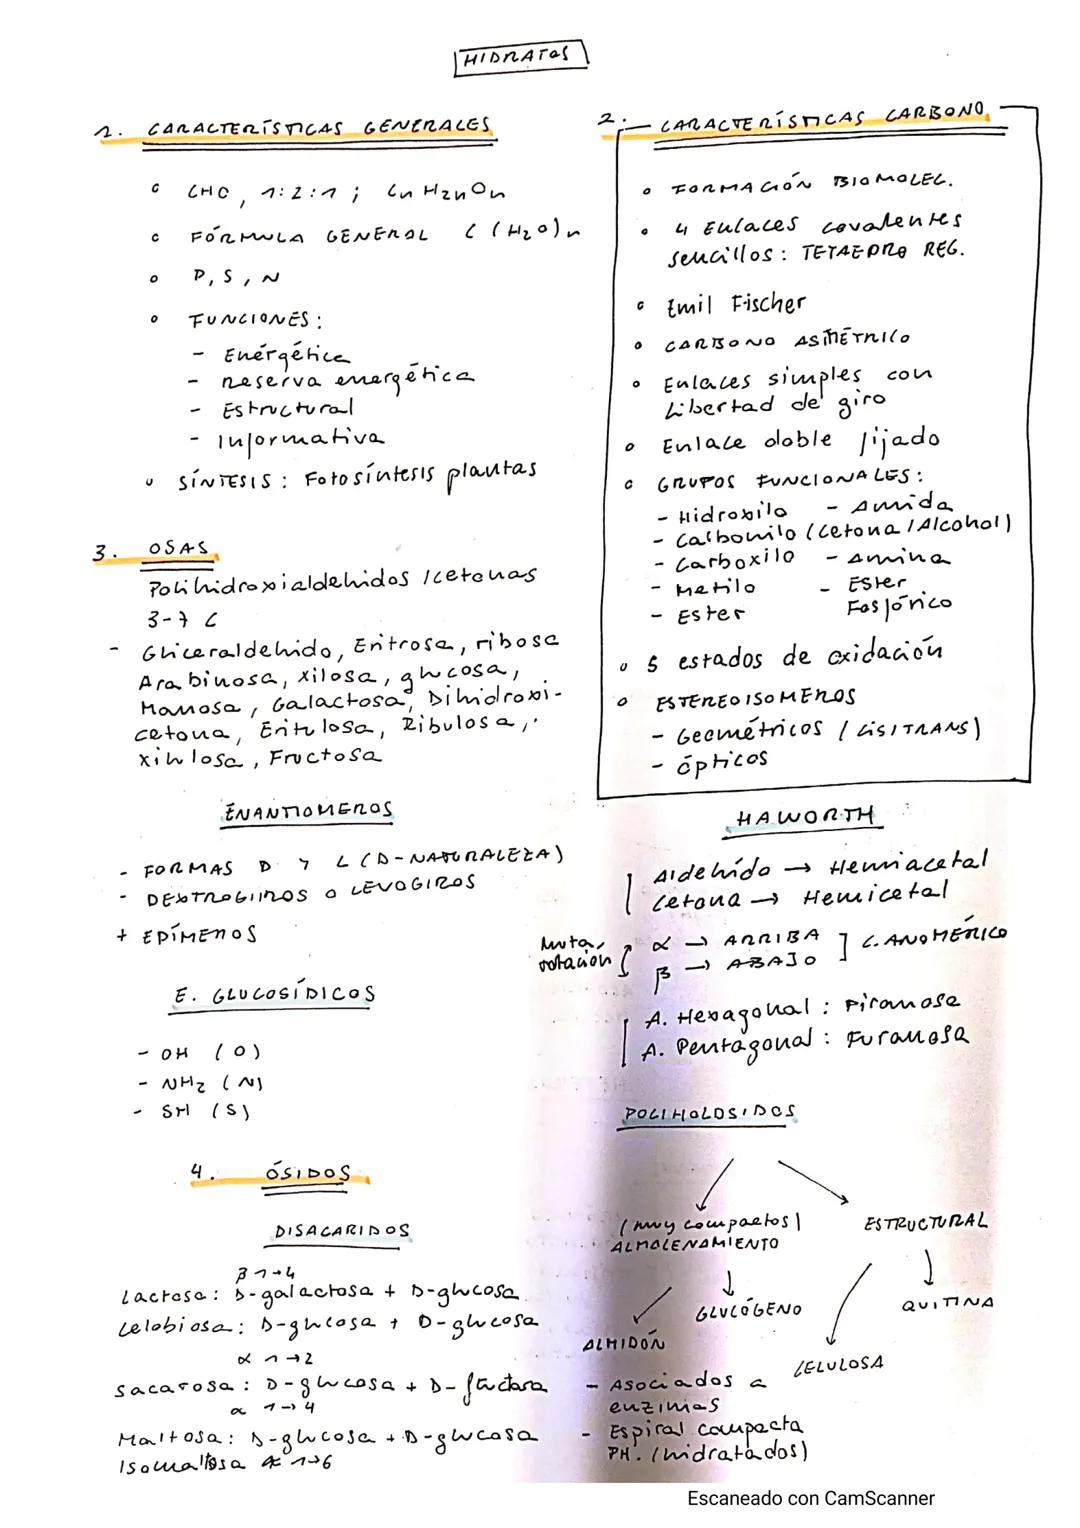 HIDRATOS
1. CARACTERÍSTICAS GENERALES
° CHO, 1:2:1; CnH2nOn
° FÓRMULA GENERAL C(H2O)n
° P, S, N
° FUNCIONES:
- Enérgética
- Reserva energética
- Estructural
- Informativa
° SÍNTESIS: Fotosíntesis plantas
2. CARACTERÍSTICAS CARBONO
° FORMACIÓN BIOMOLEC.
° 4 Enlaces covalentes
sencillos: TETAEDRO REG.
° Emil Fischer
° CARBONO ASIMÉTRICO
° Enlaces simples con
Libertad de giro
° Enlace doble fijado
° GRUPOS FUNCIONALES:
- Hidroxilo - Amida
- Carbonilo (Cetona/Alcohol)
- Carboxilo - Amina
- Metilo - Ester
- Ester Fosfórico
° 5 estados de oxidación
° ESTEREOISOMEROS
- Geométricos (CIS/TRANS)
- Ópticos
3. OSAS
Polihidroxialdehidos/cetonas
3-7 C
- Gliceraldehido, Eritrosa, ribosa
Arabinosa, xilosa, glucosa,
Manosa, Galactosa, Dihidroxi-
cetona, Eritulosa, Ribulosa,
xilulosa, Fructosa
ENANTIOMEROS
- FORMAS D Y L (D-NATURALEZA)
- DEXTROGIROS O LEVOGIROS
+ EPÍMEROS
E. GLUCOSÍDICOS
- OH (O)
- NH2 (N)
- SH (S)
HAWORTH
Aldehído → Hemiacetal
Cetona → Hemicetal
Muta-
rotación
α → ARRIBA
β → ABAJO
C. ANOMÉRICO
A. Hexagonal: Piranosa
A. Pentagonal: Furanosa
4. ÓSIDOS
DISACARIDOS
β 1→4
Lactosa: D-galactosa + D-glucosa
Celobiosa: D-glucosa + D-glucosa
α 1→2
Sacarosa: D-glucosa + D-fructosa
α 1→4
Maltosa: D-glucosa + D-glucosa
Isomaltosa α 1→6
POLIHOLOSIDOS
(muy compactos)
ALMACENAMIENTO
ESTRUCTURAL
GLUCÓGENO
QUITINA
ALMIDÓN
CELULOSA
- Asociados a
enzimas
- Espiral compacta
PH. (hidratados)
Escaneado con CamScanner